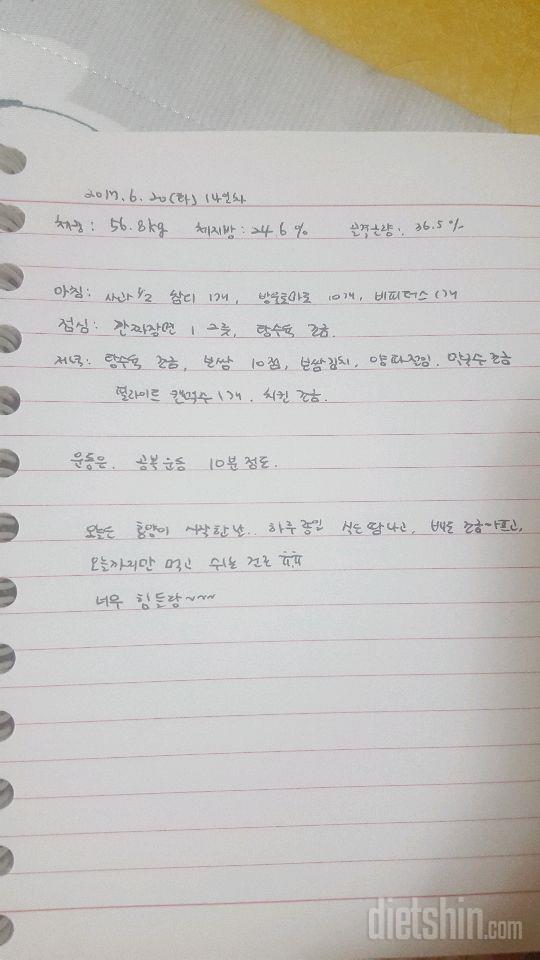 2017. 6. 20(화) 14일차
체중: 56.8kg 체지방: 24.6% 골격근량: 36.5%
아침: 사과 1/2 삶디 1개, 방울토마토 10개, 비피더스 1개
점심: 간짜장면 1그릇, 탕수육 조금.
저녁: 탕수육 조금, 보쌈 10점, 보쌈김치, 양파절임. 막국수 조금
필라이트 캔맥주 1개. 치킨 조금.
운동은. 공복운동 10분정도.
오늘은 홍양이 시작한 날.. 하루종일 식은땀나고, 배도 조금~아프고,
오늘까지만 먹고 쉬는 걸로 ㅠ.ㅠ
너무 힘든랑~~~
dietshin.com